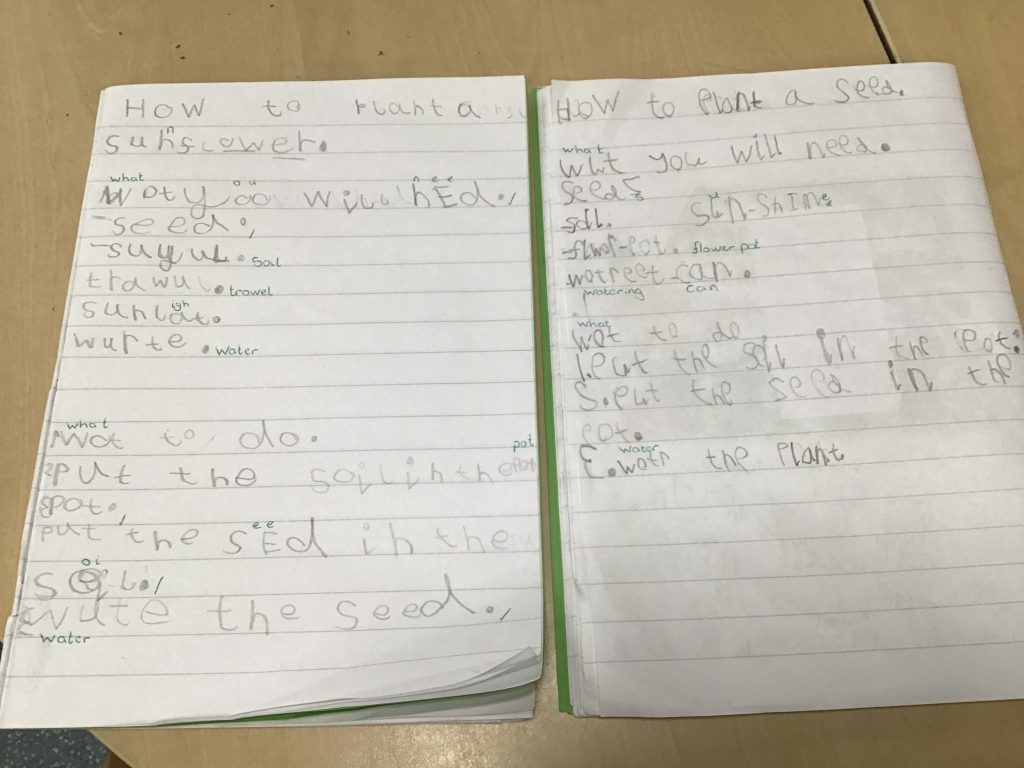 How to Plant a
sunsclower.
n
what
Wot yoo will nEd.
ou ee
-seed.
-suyul. Soil
trawul. trowel
igh
sunlat.
wurte. water
what
Wot to do.
pot
Put the soil in the
pot.
ee
put the sEd in the
oi
soil.
wute the seed.
water
How to Plant a Seed.
what
wht you will need.
seeds
soil. sun-shine
-flwor-pot. flower pot
wotreet can.
watering can
what
wot to do
1.Put the soil in the Pot.
2.Put the seed in the
Pot.
water
3.wotr the Plant